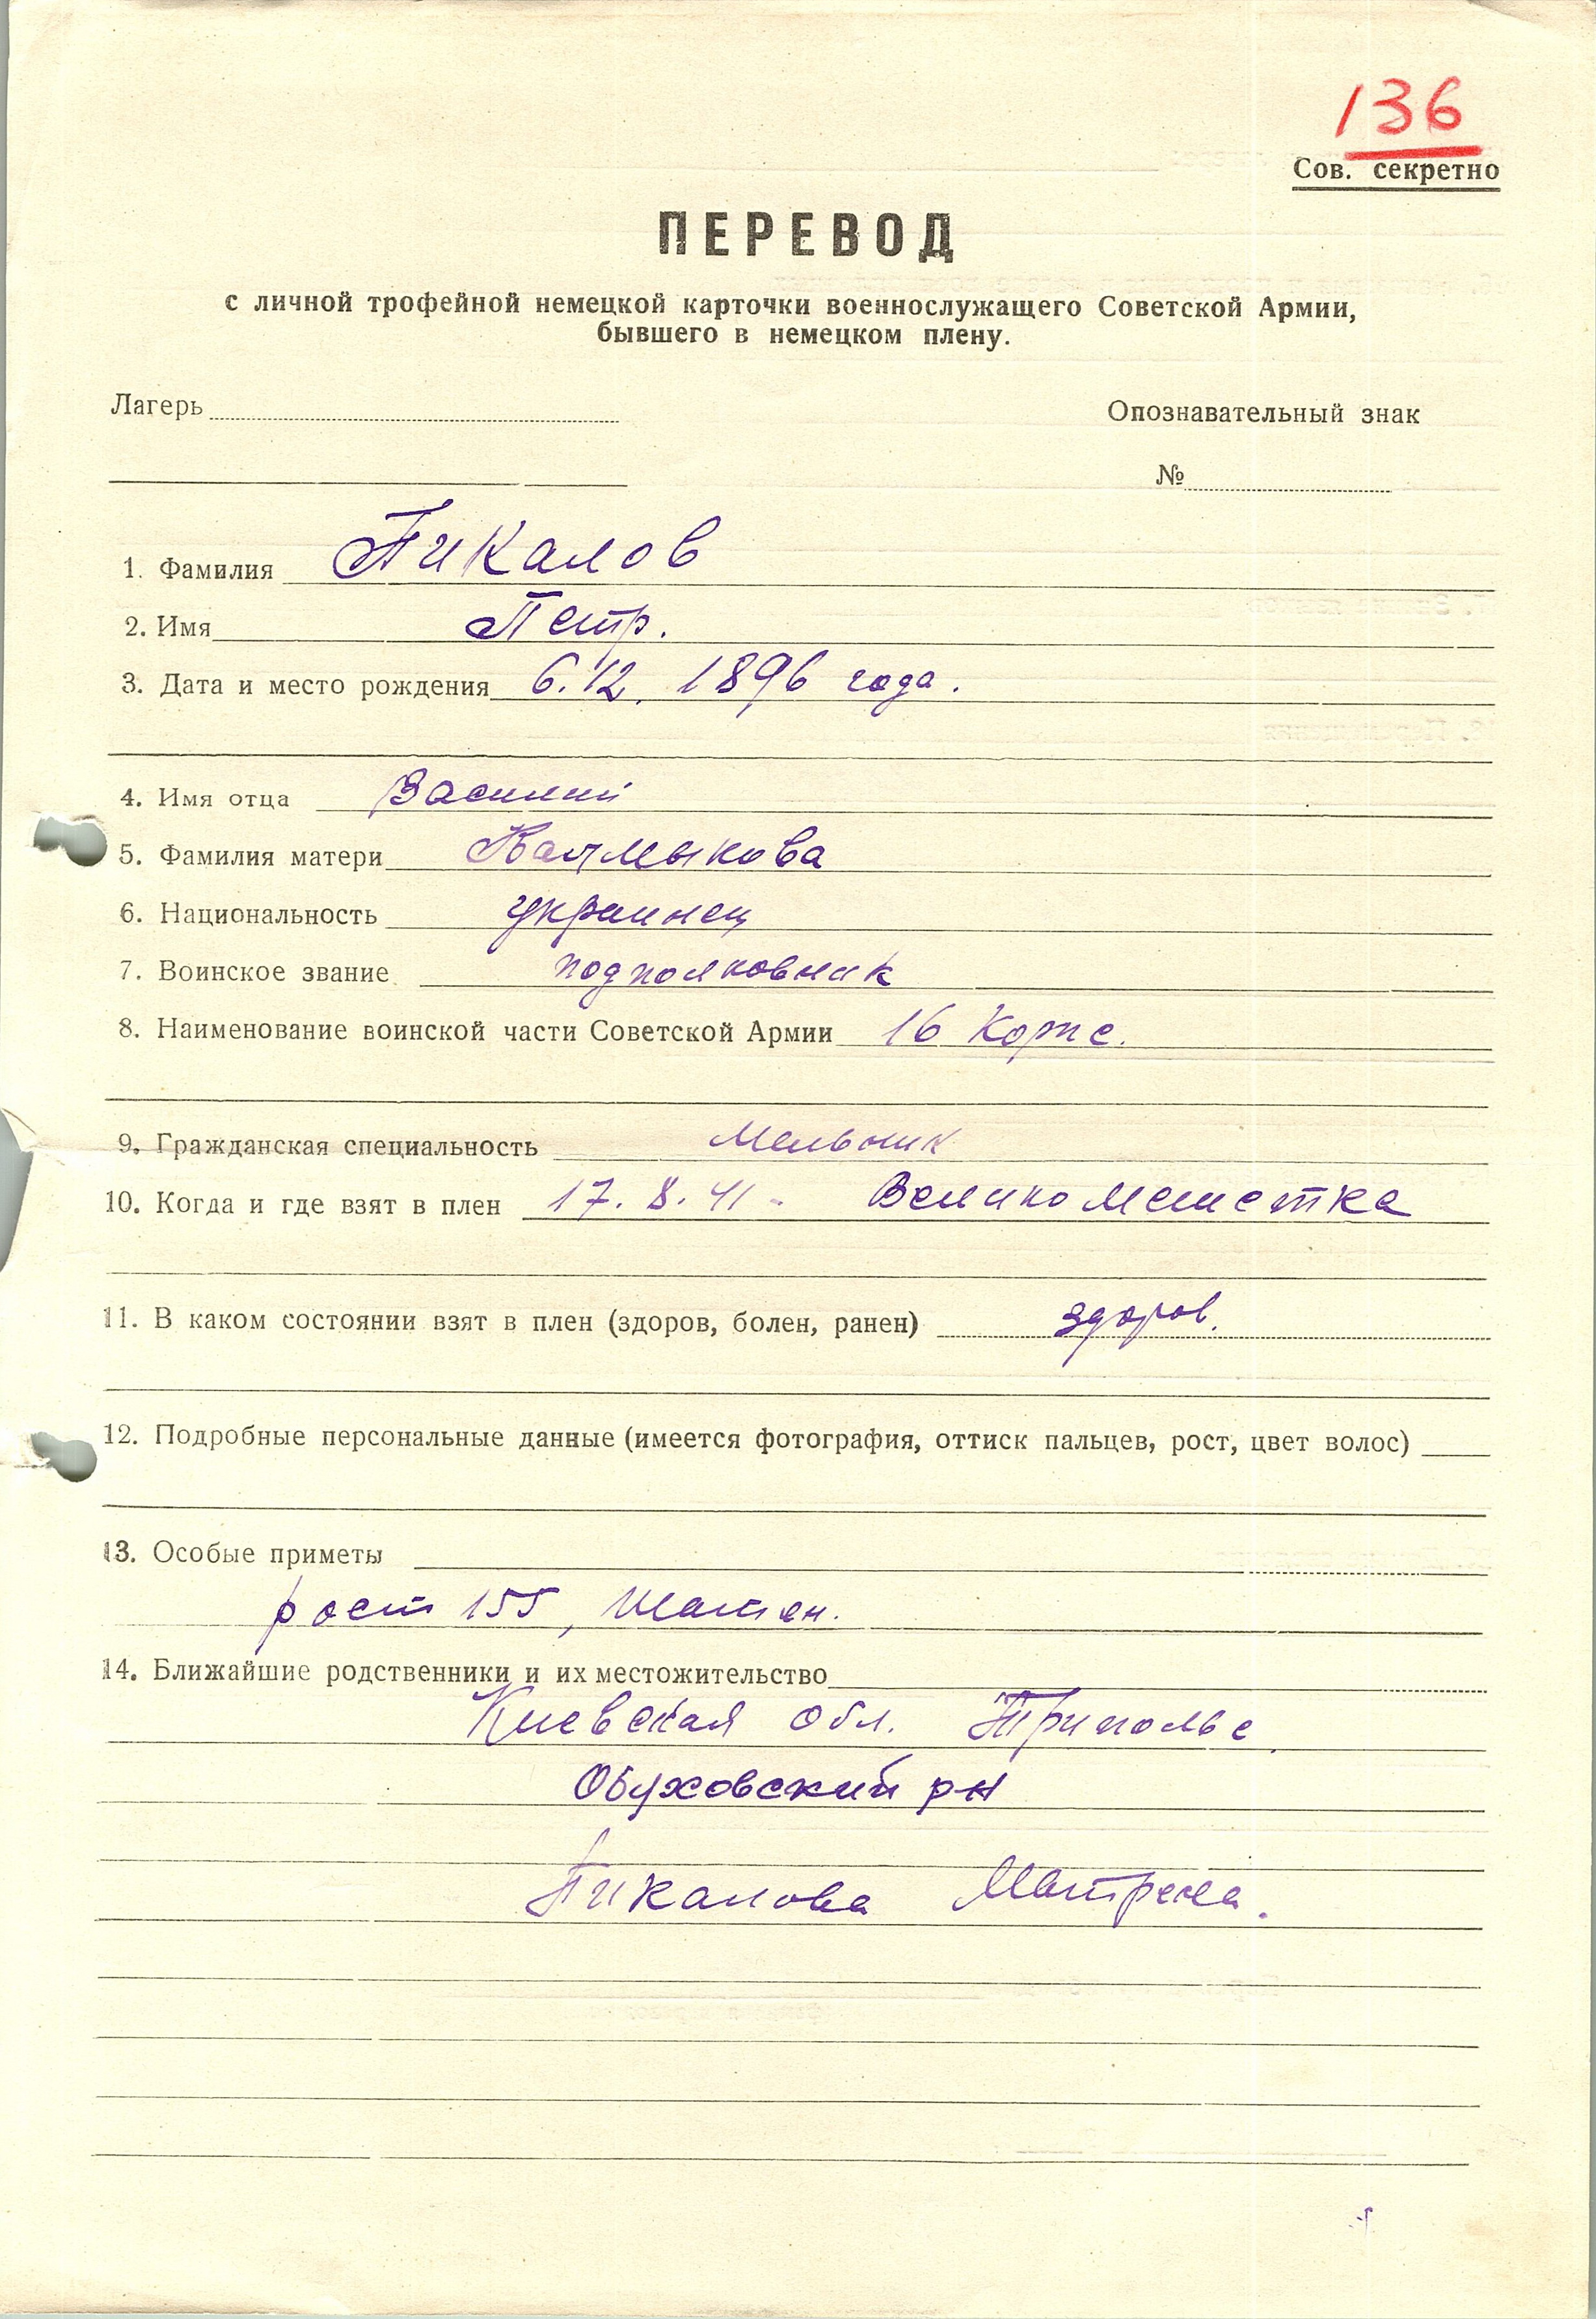 136
Сов. секретно
ПЕРЕВОД
с личной трофейной немецкой карточки военнослужащего Советской Армии,
бывшего в немецком плену.
Лагерь
Опознавательный знак
№
1. Фамилия Пикалов
2. Имя Петр.
3. Дата и место рождения 6.12. 1896 года.
4. Имя отца Василий
5. Фамилия матери Калмыкова
6. Национальность украинец
7. Воинское звание подполковник
8. Наименование воинской части Советской Армии 16 Корпс.
9. Гражданская специальность Мельник
10. Когда и где взят в плен 17. 8. 41 -
11. В каком состоянии взят в плен (здоров, болен, ранен) здоров.
12. Подробные персональные данные (имеется фотография, оттиск пальцев, рост, цвет волос)
13. Особые приметы
рост 155, Шатен.
14. Ближайшие родственники и их местожительство
Киевская обл. Триполье
Обуховский рн
Пикалова Матрена.